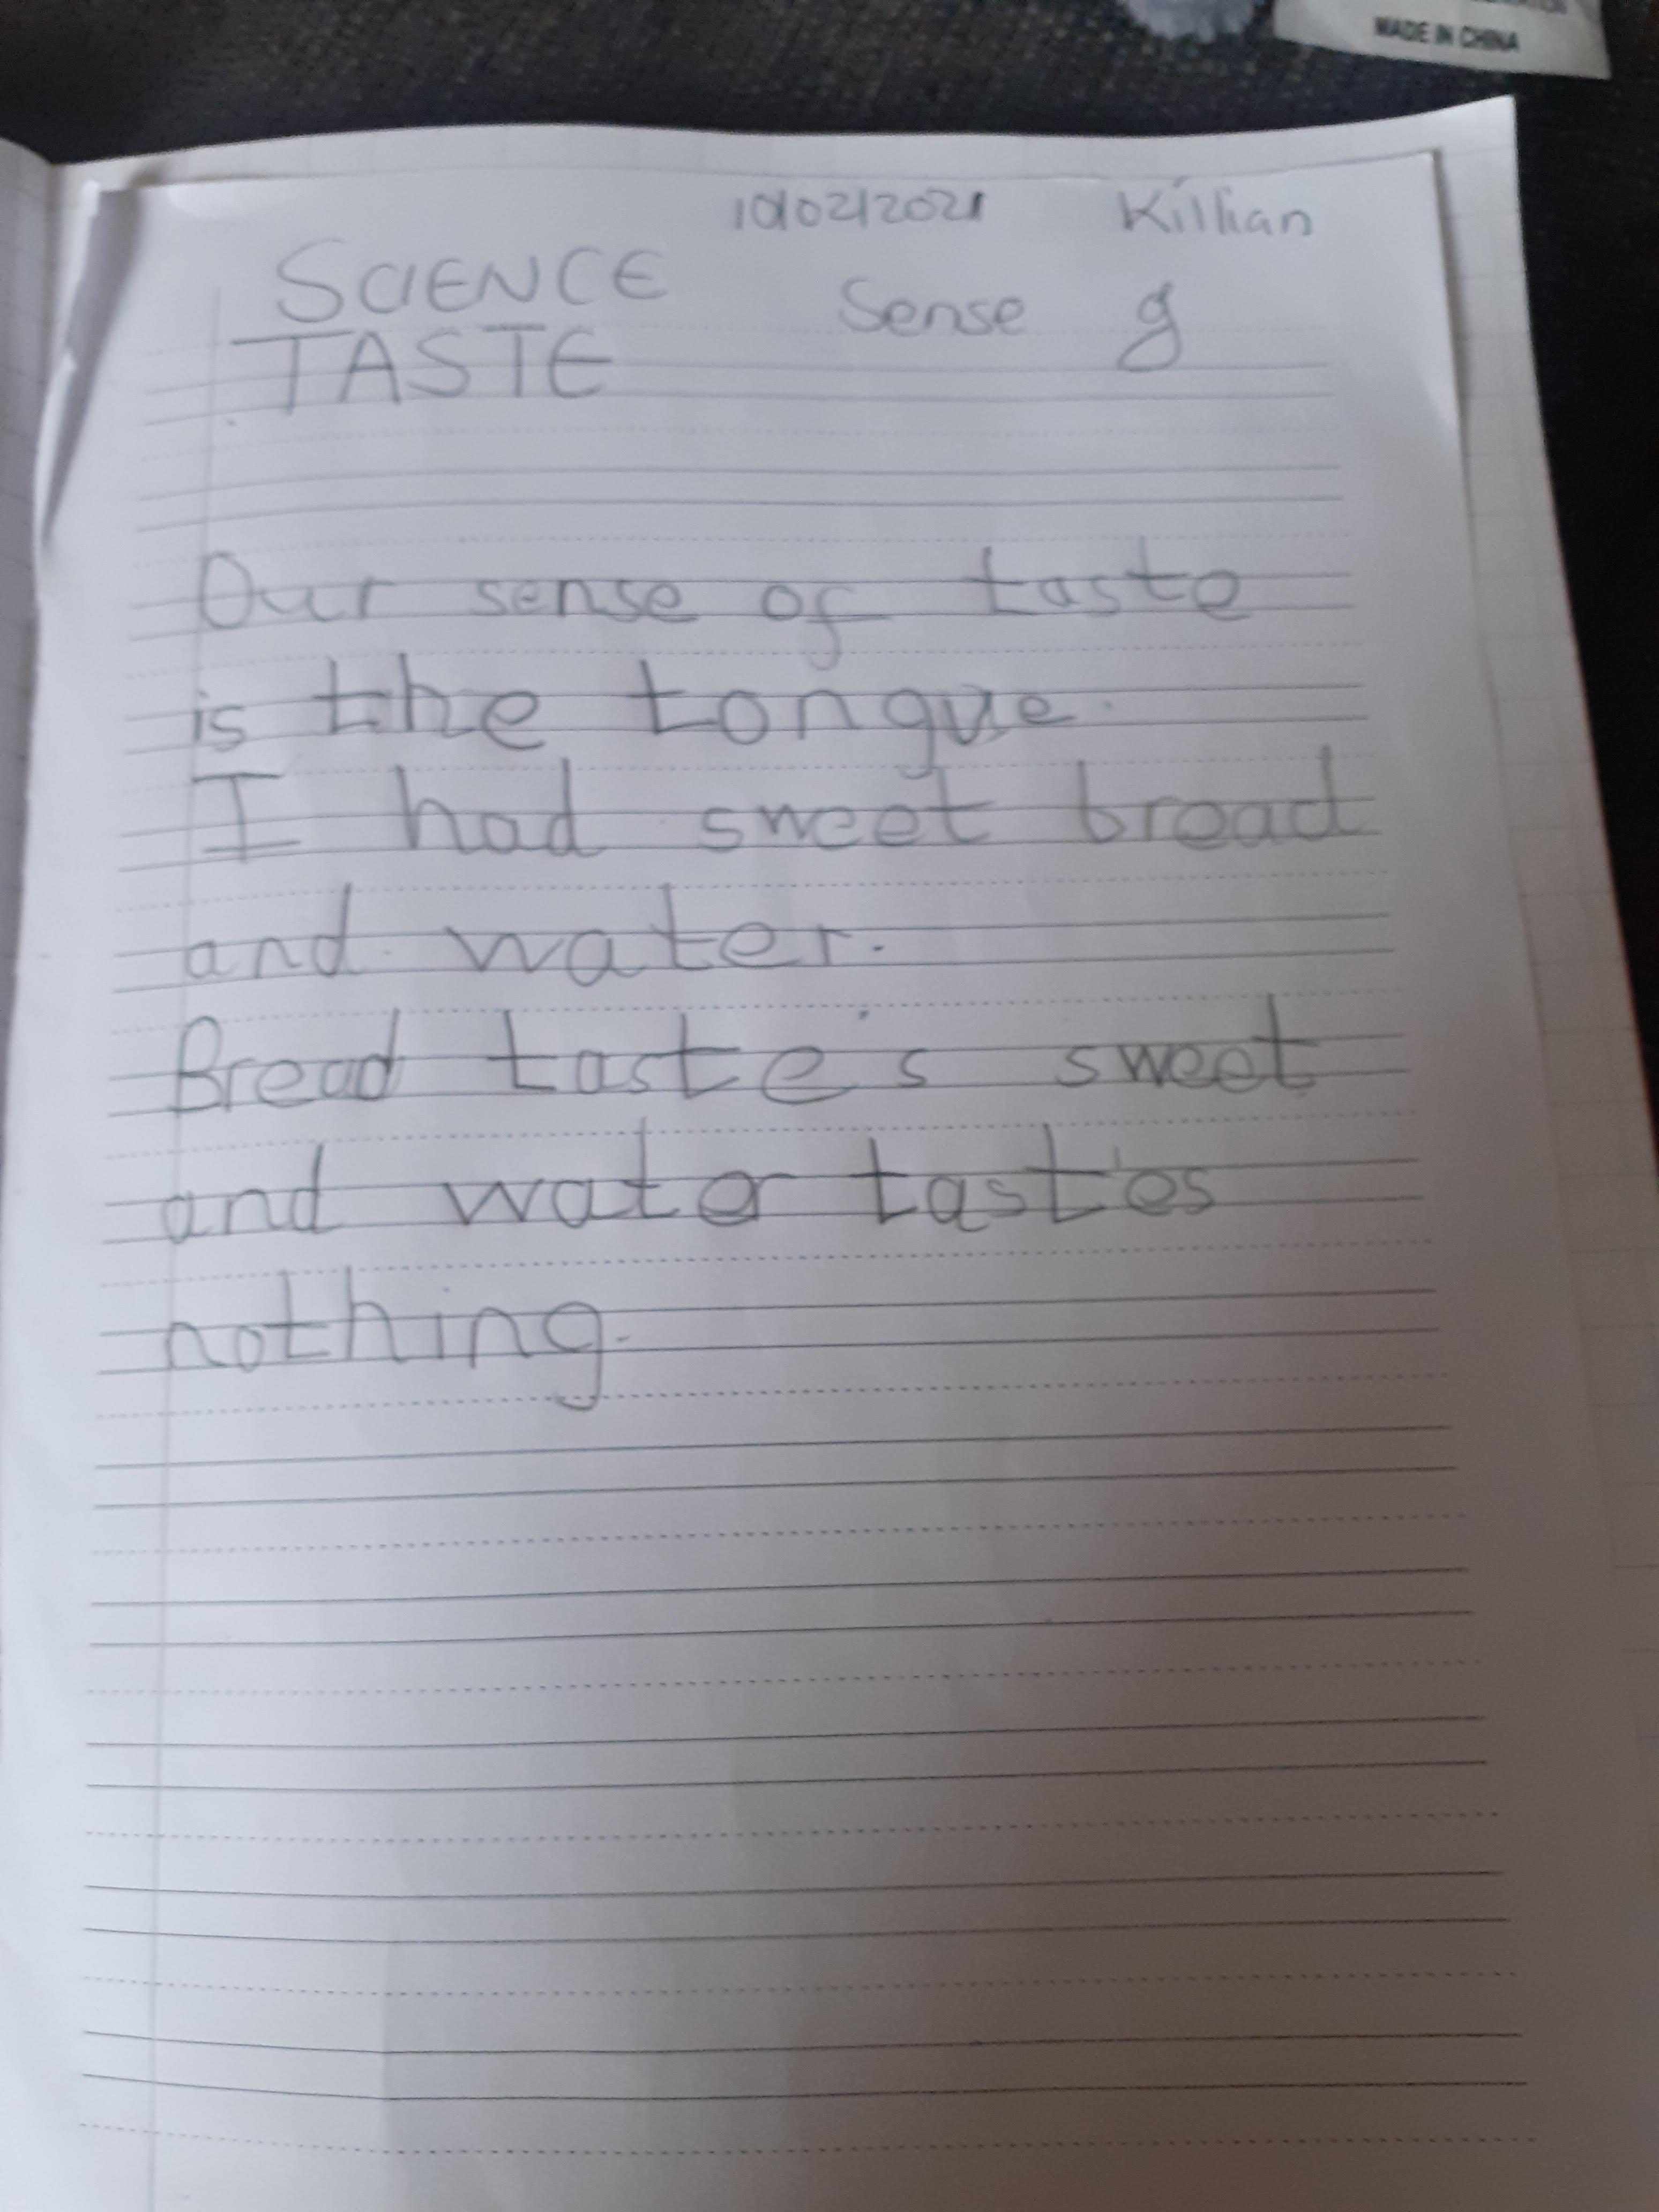 MADE IN CHINA
10/02/2021 Killian
SCIENCE Sense of
TASTE
Our sense of taste
is the tongue.
I had sweet bread
and water.
Bread taste's sweet
and water tast'es
nothing.